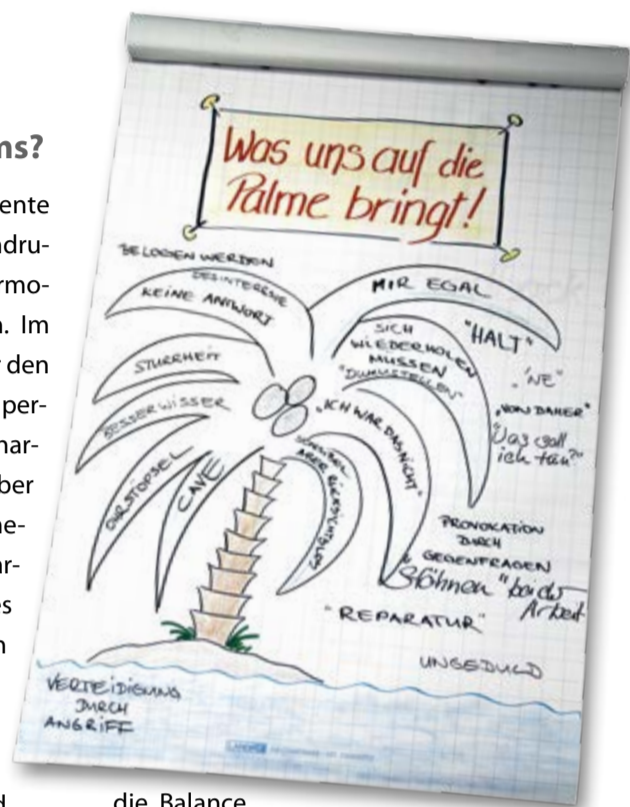 ns?
ente
ndru-
rmo-
n. Im
r den
per-
nar-
ber
ne-
ar-
es
n
d
die Balance
Was uns auf die
Palme bringt!
BELOGEN WERDEN
DESINTERESSE
KEINE ANTWORT
STURRHEIT
BESSERWISSER
OHRSTÖPSEL
CAVE
MIR EGAL
SICH
WIEDERHOLEN
MÜSSEN
"DUMMSTELLEN"
"ICH WAR DAS NICHT"
ABER RÜCKSICHTSLOS
"HALT"
"NE"
"VON DAHER"
"Was soll
ich tun?"
PROVOKATION
DURCH
GEGENFRAGEN
"Stöhnen" bei der
Arbeit
"REPARATUR"
UNGEDULD
VERTEIDIGUNG
DURCH
ANGRIFF